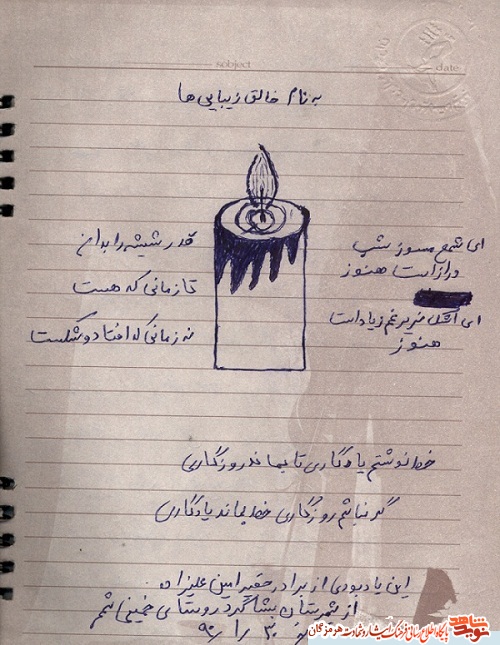 sobject
date
به نام خالق زیبایی ها
ای شمع مسوز شب
دراز است هنوز
ای اشک نریز غم زیاد است
هنوز
قدر شیشه را بدان
تا زمانی که هست
نه زمانی که افتاد و شکست
خط نوشتم یادگاری تا بماند روزگاری
گر نباشم روزگاری خط بماند یادگاری
این یادبودی از برادر حقیر امین علیزاده
از شهرستان بشاگرد روستای خمینی شهر
۹۰/۱/۳۰
نوید شاهد
پایگاه اطلاع رسانی فرهنگ ایثار و شهادت هرمزگان